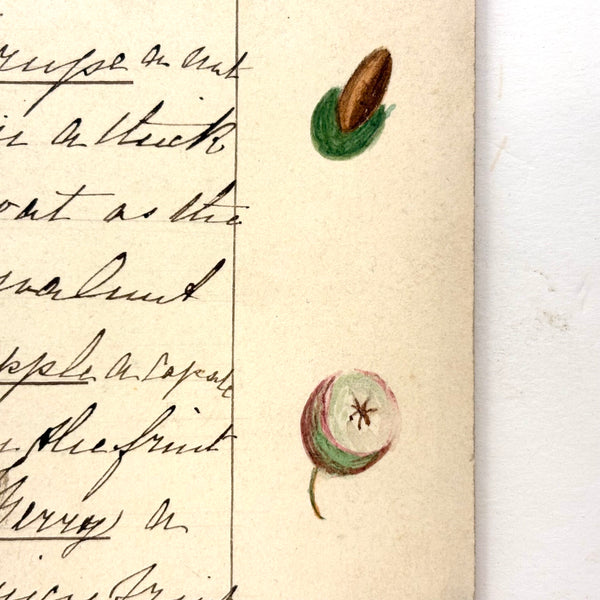 rupe a nut
in a thick
oat as the
walnut
pple a capsule
n the fruit
Berry a